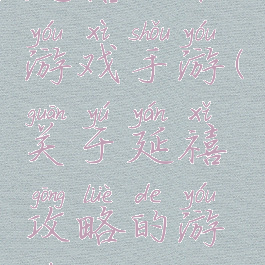 yóu xì shǒu yóu
游戏手游(
guān yú yán xǐ
关于延禧
gōng lüè de yóu
攻略的游